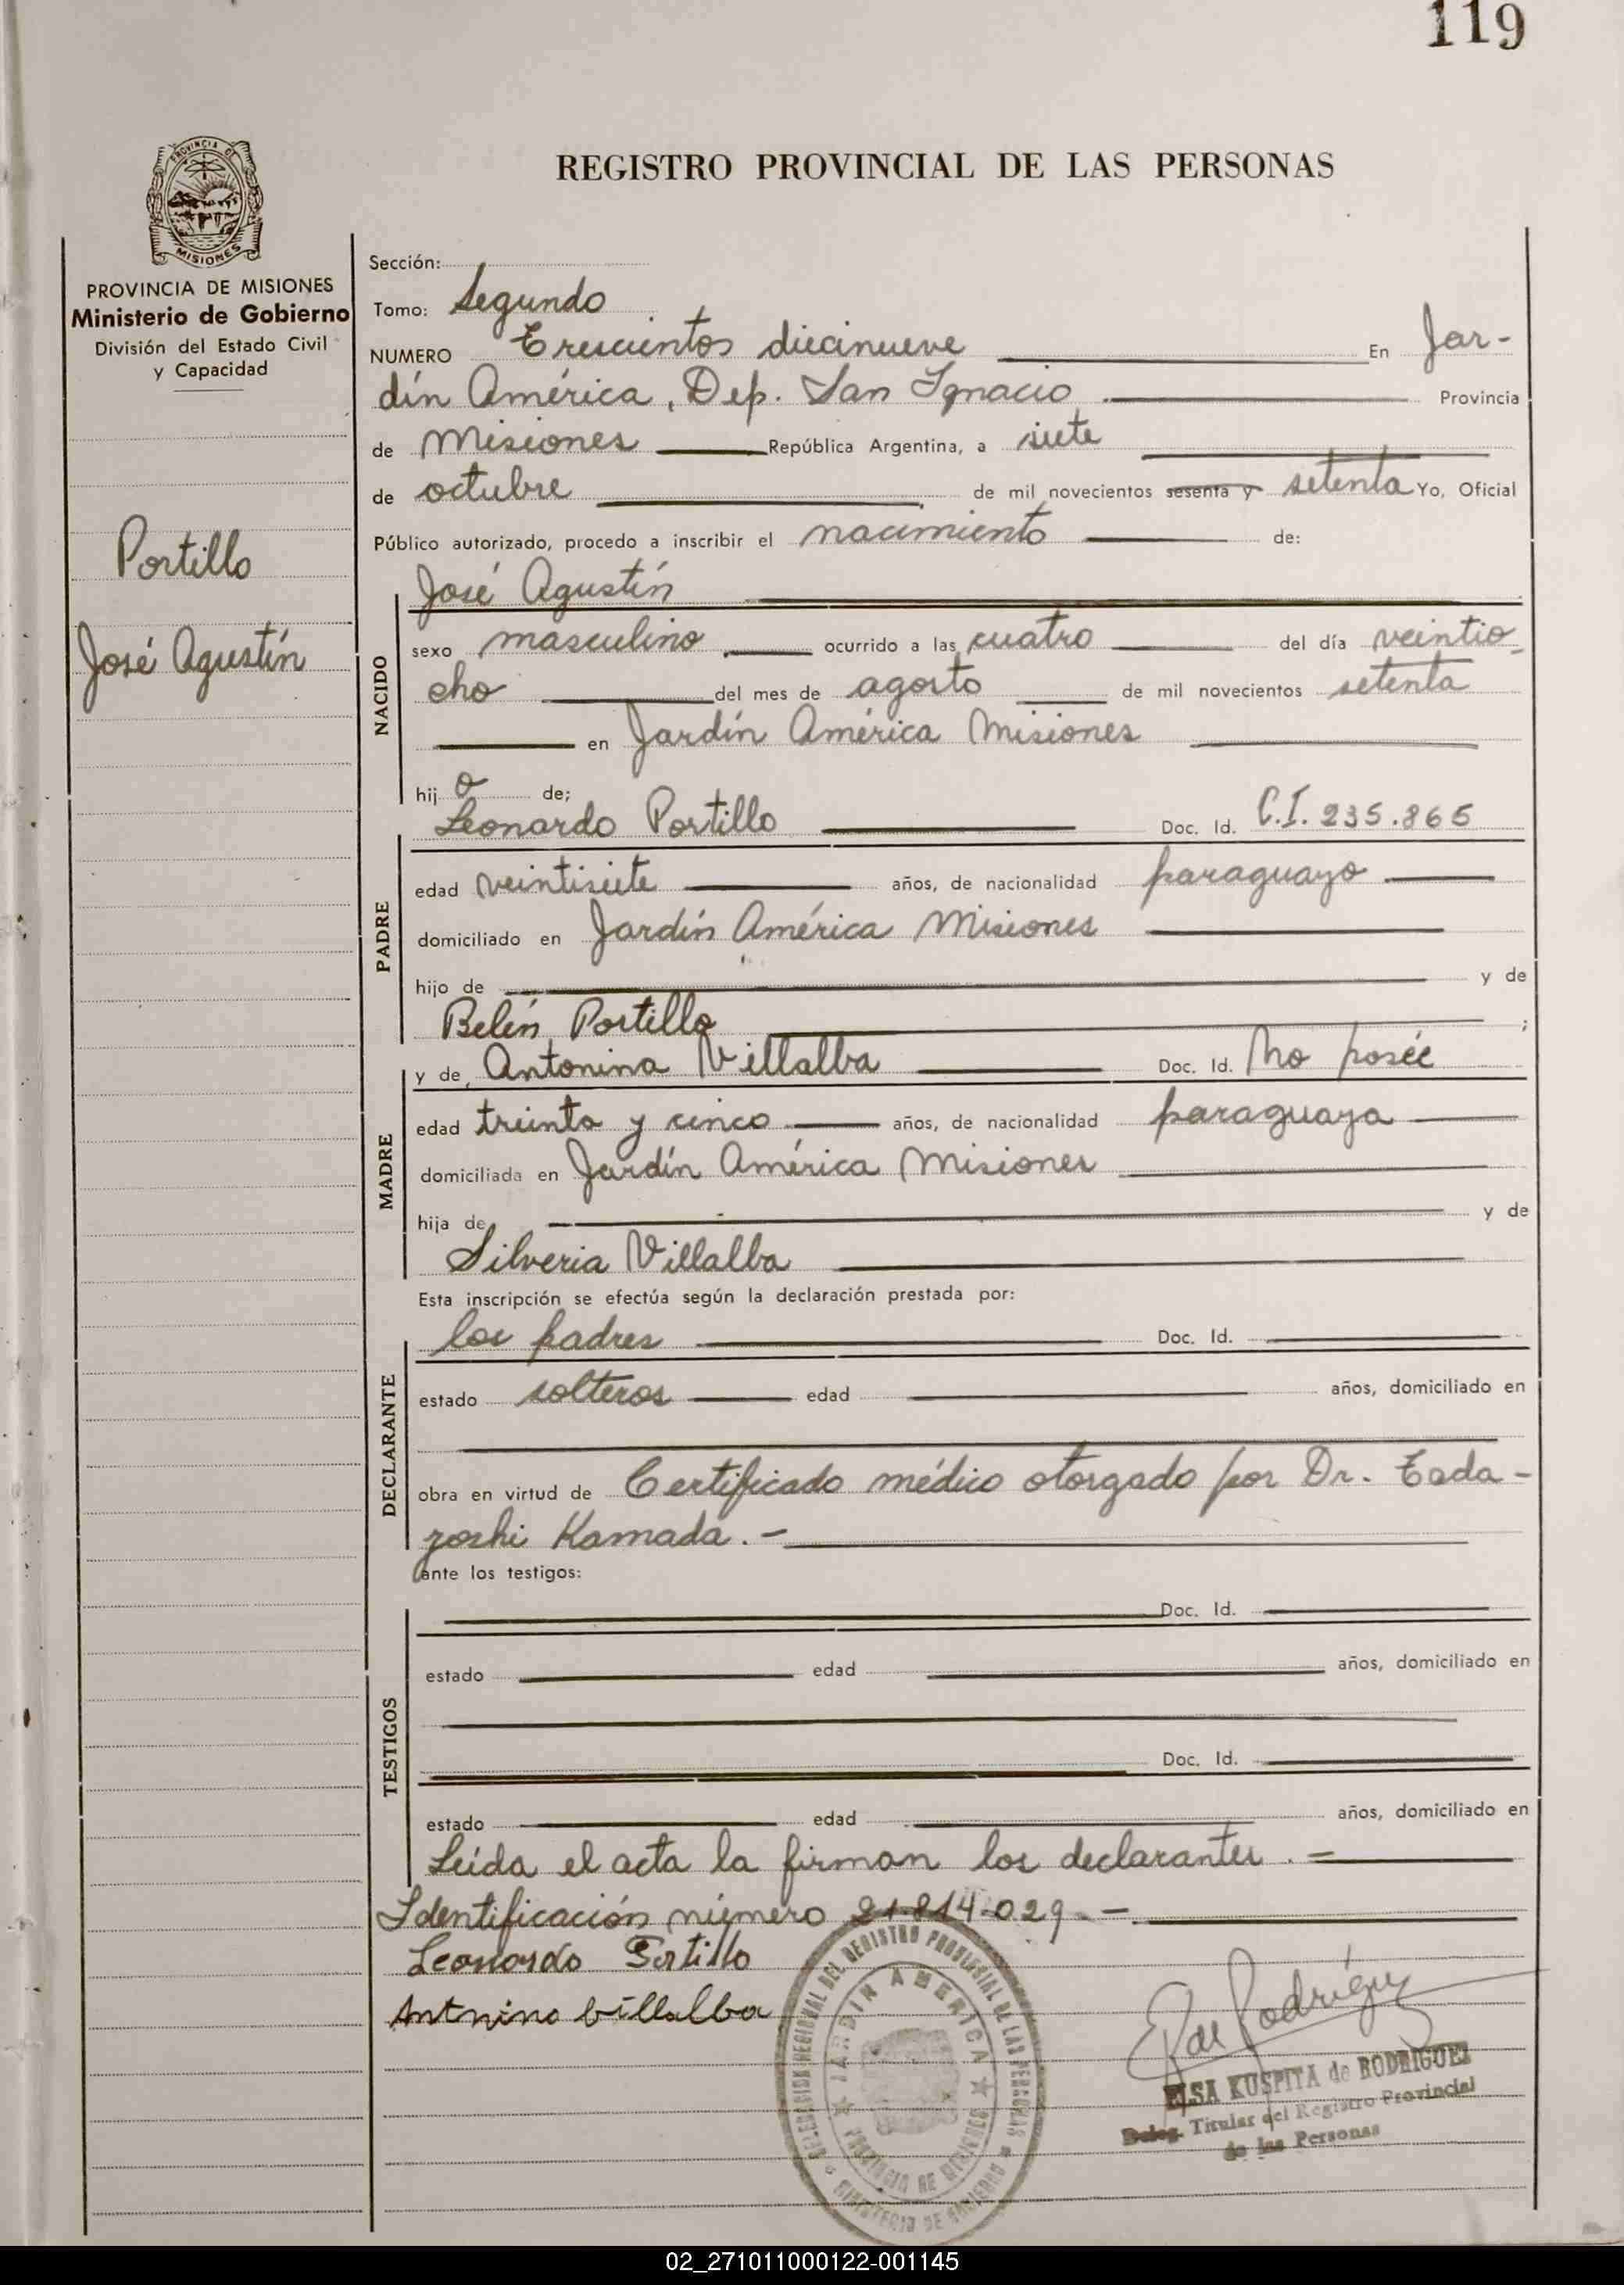 119
REGISTRO PROVINCIAL DE LAS PERSONAS
PROVINCIA DE MISIONES
MISIONES
PROVINCIA DE MISIONES
Ministerio de Gobierno
División del Estado Civil
y Capacidad
Portillo
José Agustín
Sección:
Tomo: Segundo
NUMERO Trescientos diecinueve En Jar-
dín América, Dep. San Ignacio Provincia
de Misiones República Argentina, a siete
de octubre de mil novecientos sesenta y setenta Yo, Oficial
Público autorizado, procedo a inscribir el nacimiento de:
NACIDO
José Agustín
sexo masculino ocurrido a las cuatro del día veintio
cho del mes de agosto de mil novecientos setenta
en Jardín América Misiones
hij o de;
PADRE
Leonardo Portillo Doc. Id. C.I. 235.865
edad veintisiete años, de nacionalidad paraguayo
domiciliado en Jardín América Misiones
hijo de y de
Belén Portillo ;
MADRE
y de Antonina Villalba Doc. Id. No poseé
edad treinta y cinco años, de nacionalidad paraguaya
domiciliada en Jardín América Misiones
hija de y de
Silveria Villalba
Esta inscripción se efectúa según la declaración prestada por:
DECLARANTE
los padres Doc. Id.
estado solteros edad años, domiciliado en
obra en virtud de Certificado médico otorgado por Dr. Tada-
yoshi Kamada.-
ante los testigos:
TESTIGOS
Doc. Id.
estado edad años, domiciliado en
Doc. Id.
estado edad años, domiciliado en
Leída el acta la firman los declarantes.=
Identificación número 21.814.029.-
Leonardo Portillo
Antnina billalba
DELEGACION REGIONAL DEL REGISTRO PROVINCIAL DE LAS PERSONAS
JARDIN AMERICA
PROVINCIA DE MISIONES
MINISTERIO DE GOBIERNO
E de Rodríguez
ELSA KUSPITA de RODRIGUEZ
Deleg. Titular del Registro Provincial
de las Personas
02_271011000122-001145